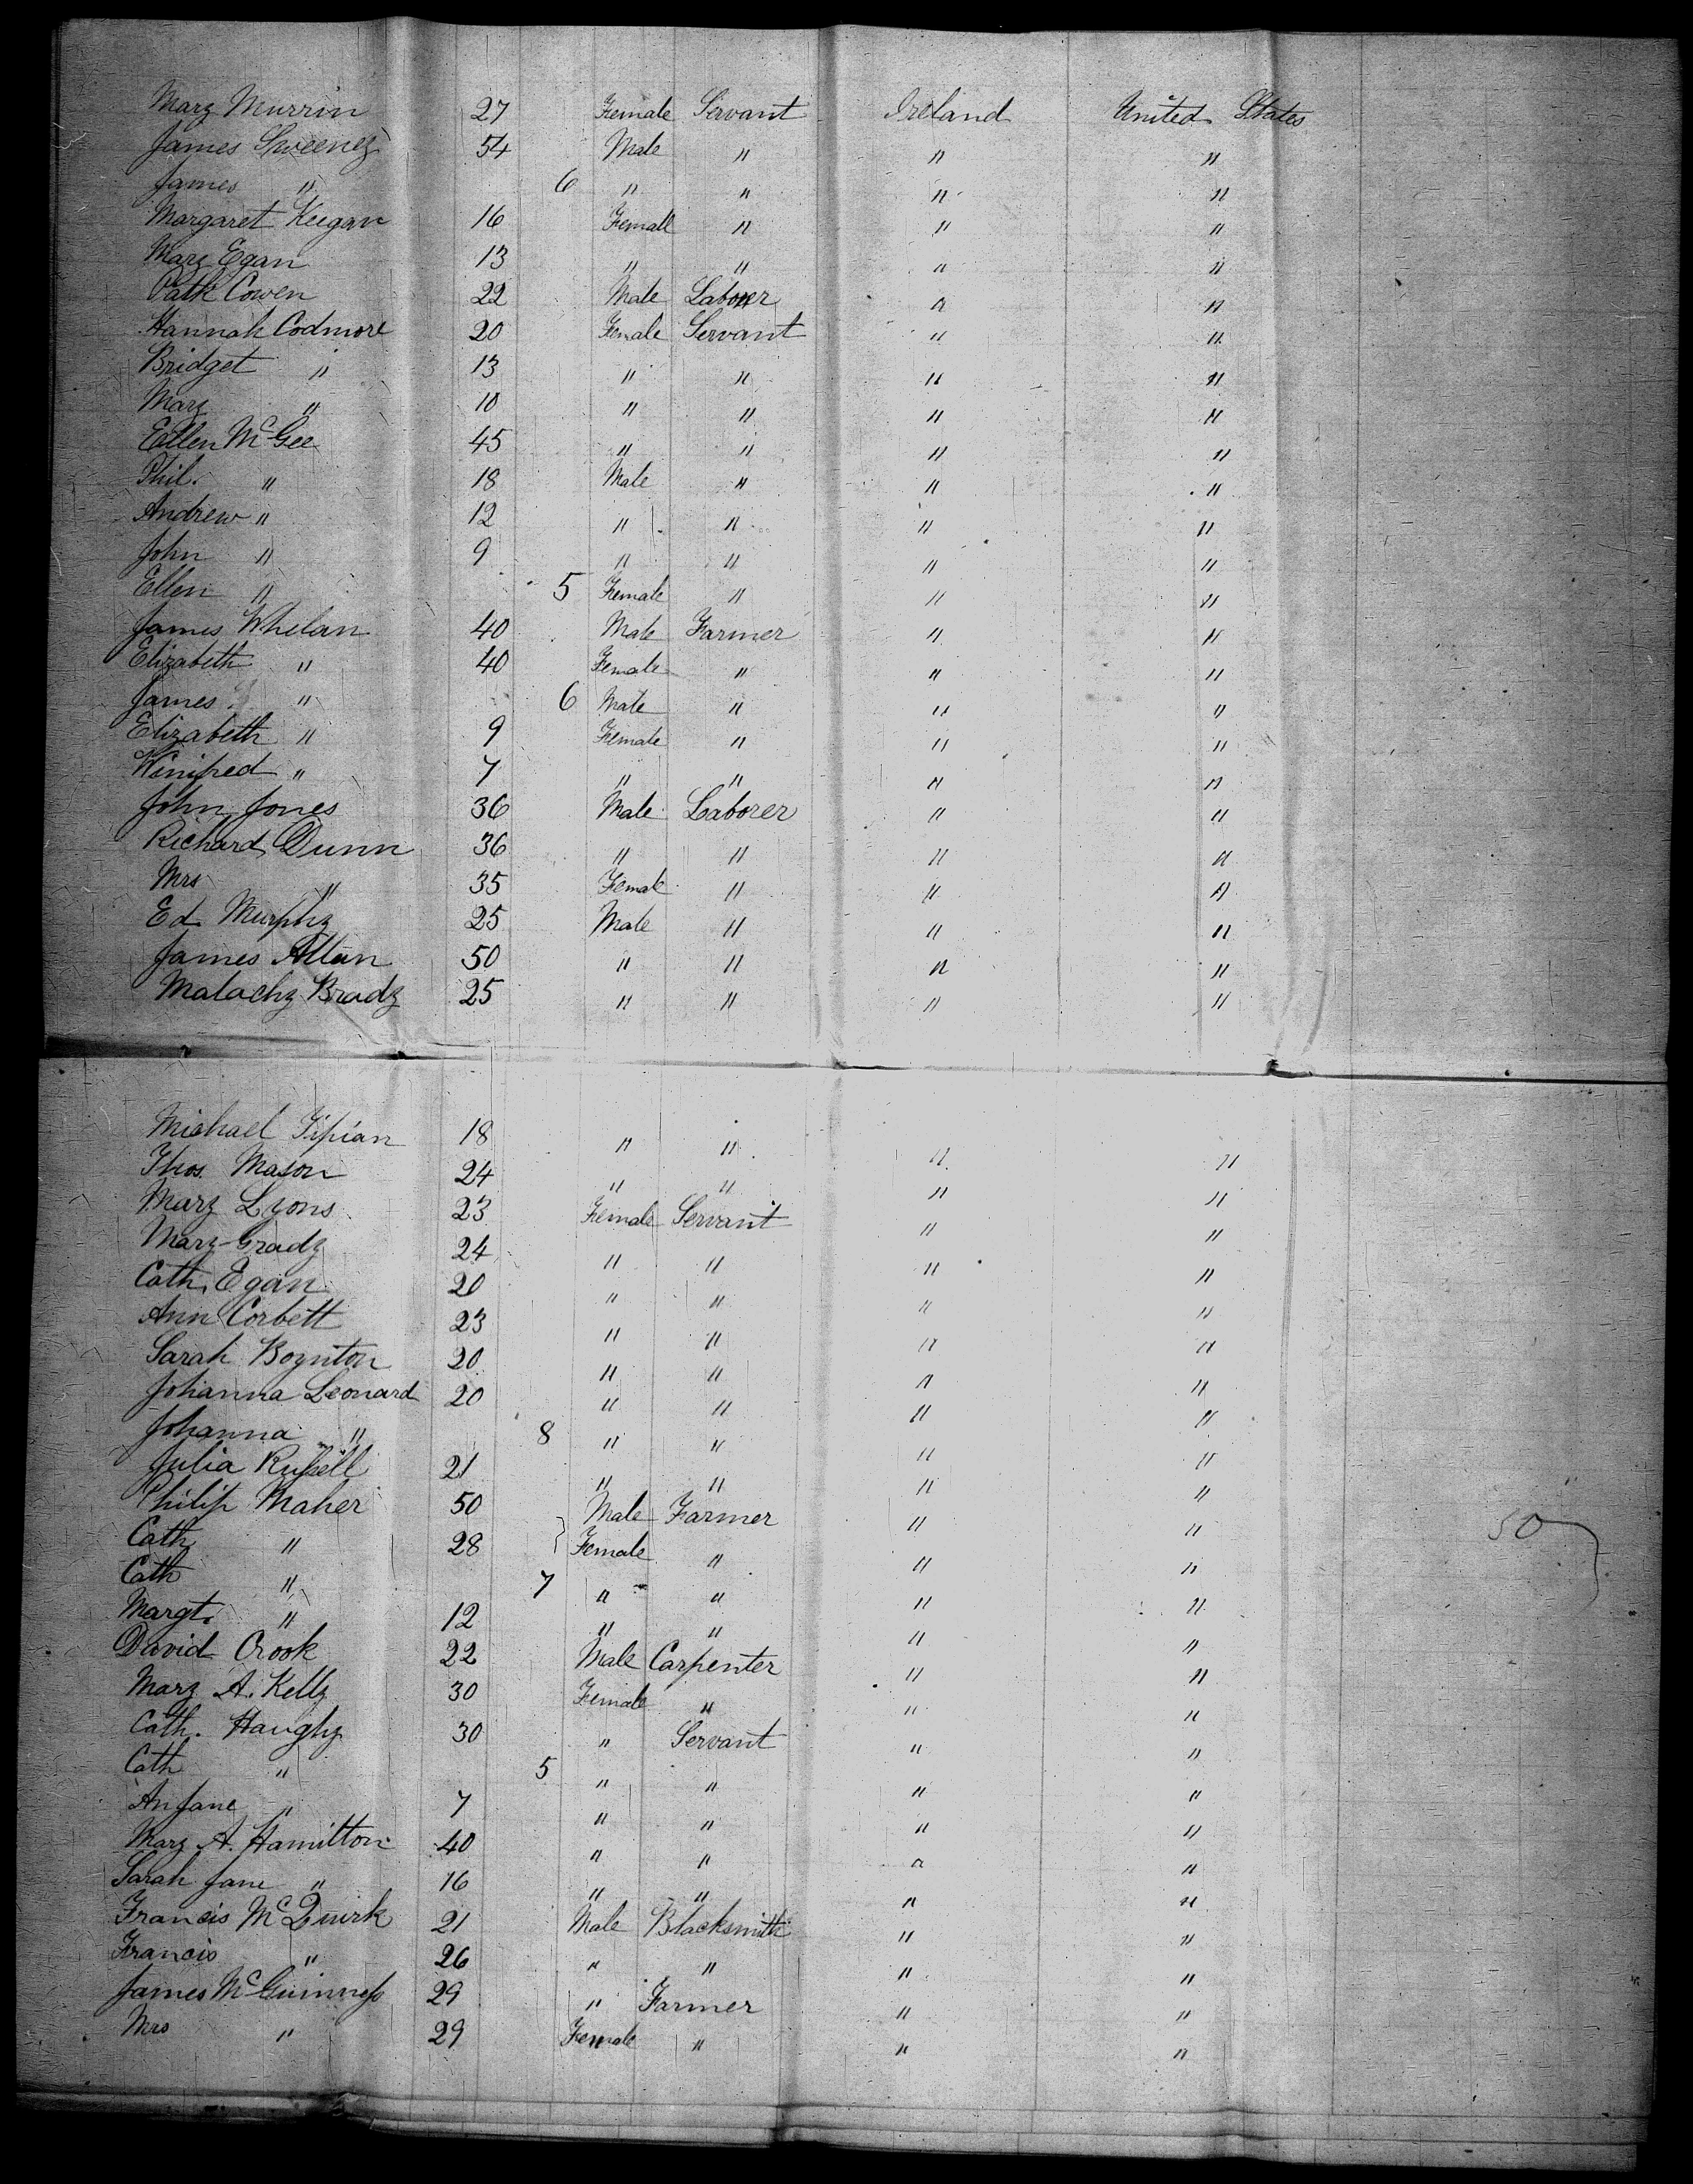 Mary Murrin 27 Female Servant Ireland United States
James Sweeney 54 Male " " "
James " 6 " " " "
Margaret Keegan 16 Female " " "
Mary Egan 13 " " " "
Patk Cowen 22 Male Laborer " "
Hannah Codmore 20 Female Servant " "
Bridget " 13 " " " "
Mary " 10 " " " "
Ellen McGee 45 " " " "
Phil. " 18 Male " " "
Andrew " 12 " " " "
John " 9 " " " "
Ellen " 5 Female " " "
James Whelan 40 Male Farmer " "
Elizabeth " 40 Female " " "
James " 6 Male " " "
Elizabeth " 9 Female " " "
Winifred " 7 " " " "
John Jones 36 Male Laborer " "
Richard Dunn 36 " " " "
Mrs " 35 Female " " "
Ed Murphy 25 Male " " "
James Allen 50 " " " "
Malachy Brady 25 " " " "
Michael 18 " " " "
Thos. Mason 24 " " " "
Mary Lyons 23 Female Servant " "
Mary Grady 24 " " " "
Cath. Egan 20 " " " "
Ann Corbett 23 " " " "
Sarah Boynton 20 " " " "
Johanna Leonard 20 " " " "
Johanna " 8 " " " "
Julia Russell 21 " " " "
Philip Maher 50 Male Farmer " "
Cath " 28 Female " " " 50
Cath " 7 " " " "
Margt. " 12 " " " "
David Crook 22 Male Carpenter " "
Mary A. Kelly 30 Female " " "
Cath. Haughy 30 " Servant " "
Cath " 5 " " " "
An Jane " 7 " " " "
Mary A. Hamilton 40 " " " "
Sarah Jane " 16 " " " "
Francis McQuirk 21 Male Blacksmith " "
Francis " 26 " " " "
James McGuinness 29 " Farmer " "
Mrs " 29 Female " " "